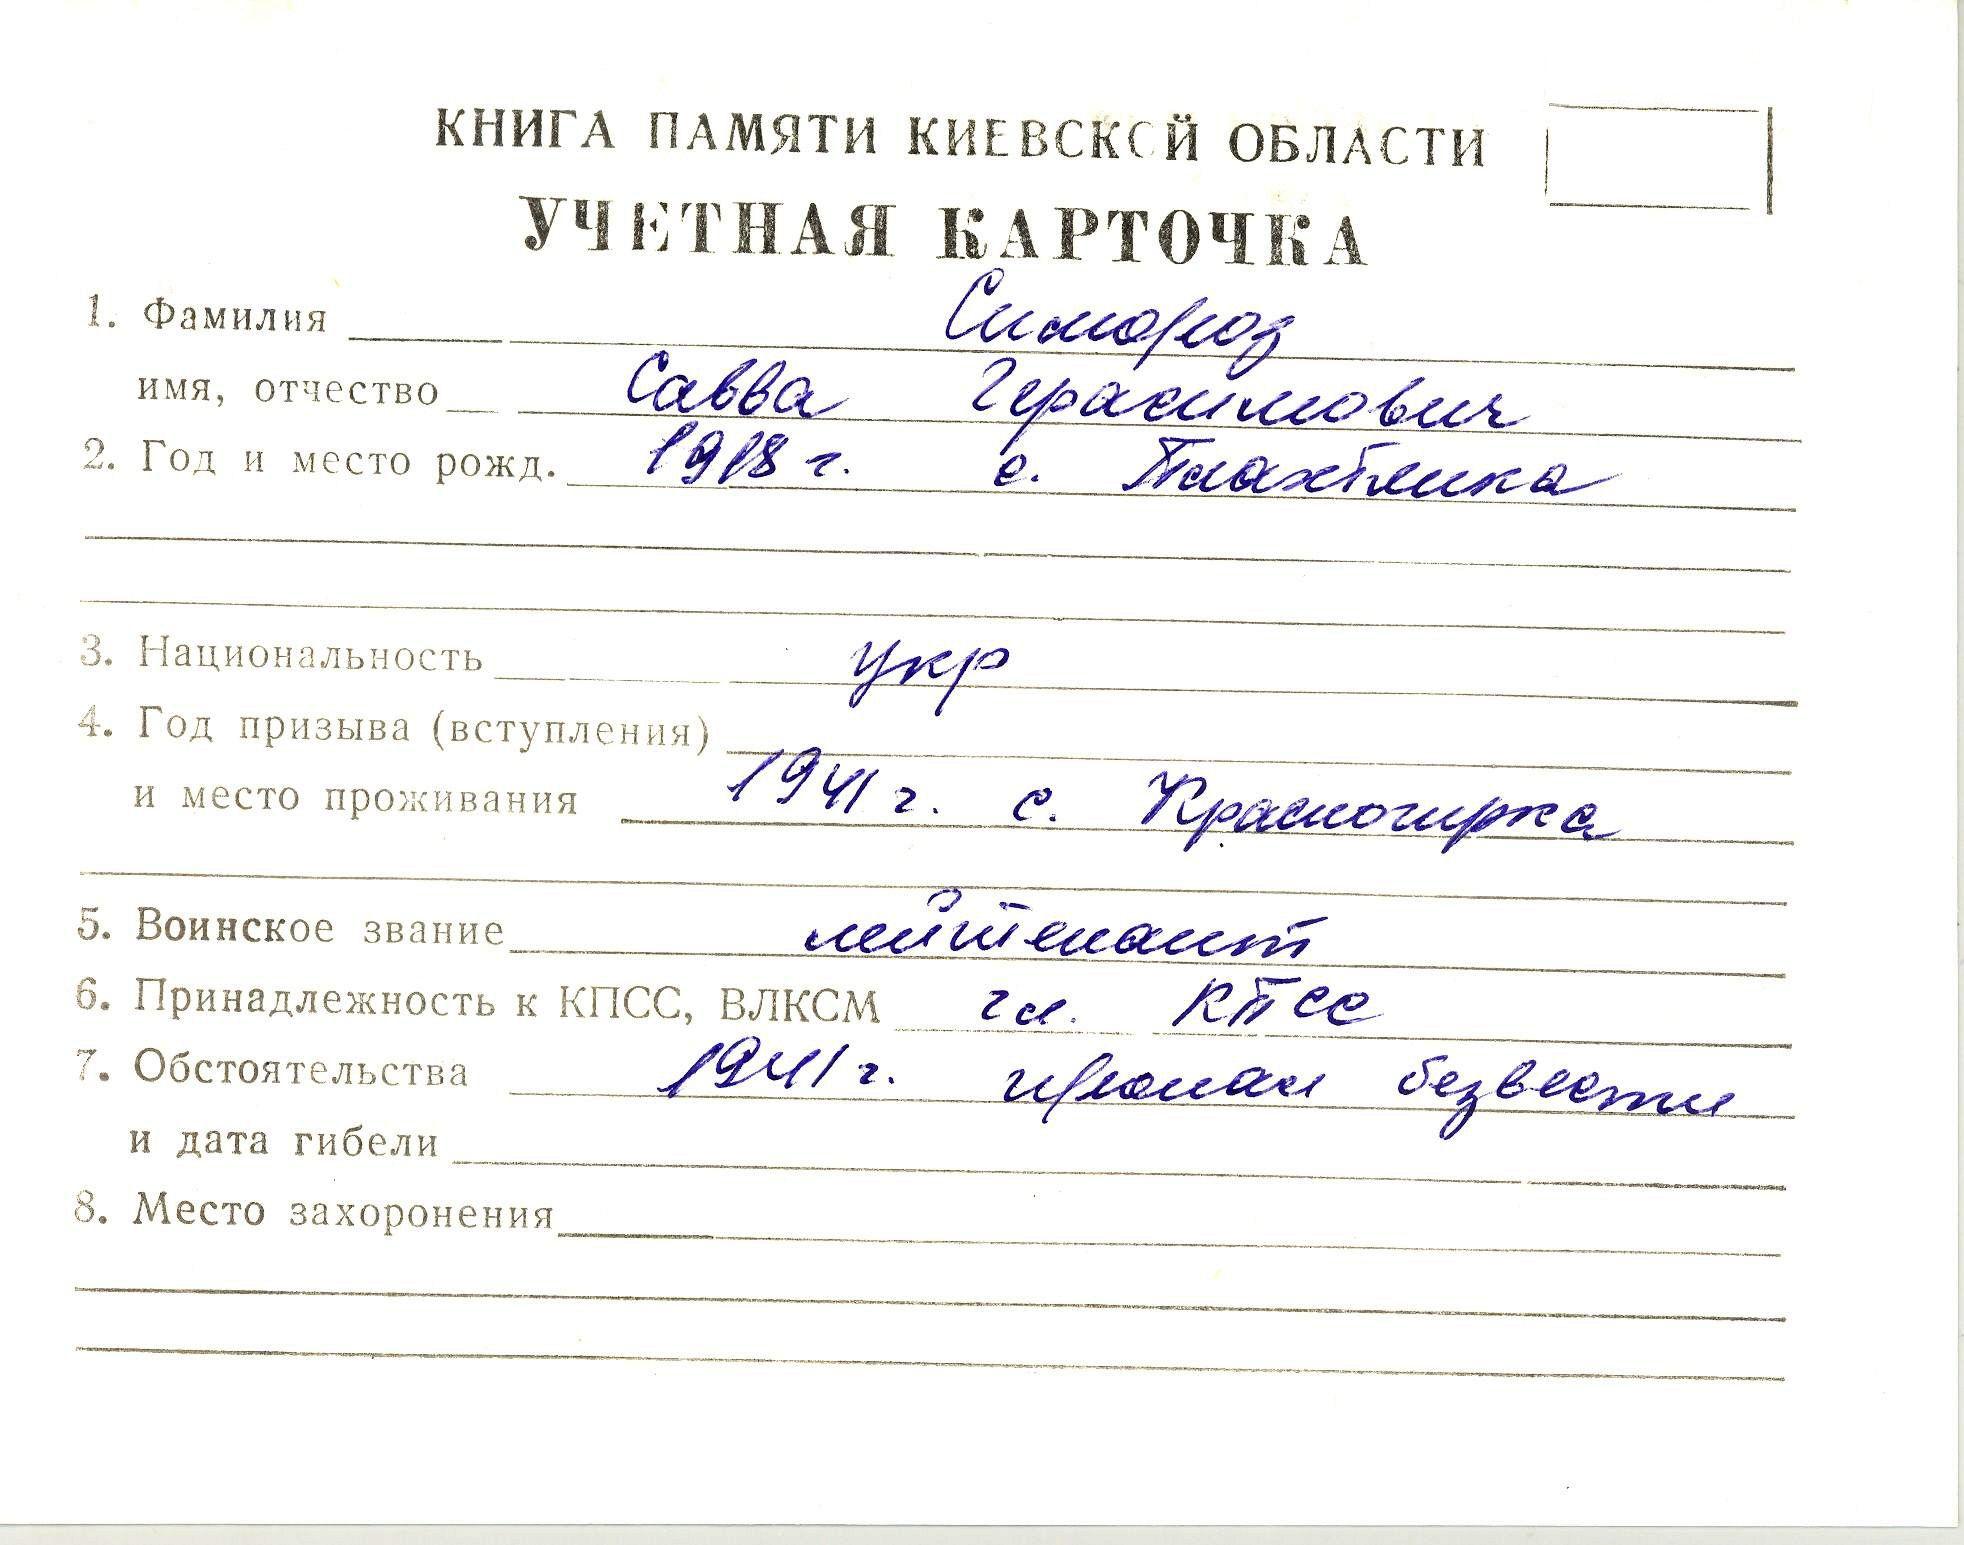 КНИГА ПАМЯТИ КИЕВСКОЙ ОБЛАСТИ
УЧЕТНАЯ КАРТОЧКА
1. Фамилия Симороз
имя, отчество Савва Герасимович
2. Год и место рожд. 1918 г. с. Плахтянка
3. Национальность укр
4. Год призыва (вступления)
и место проживания 1941 г. с. Красногирка
5. Воинское звание лейтенант
6. Принадлежность к КПСС, ВЛКСМ чл. КПСС
7. Обстоятельства 1941 г. пропал безвести
и дата гибели
8. Место захоронения